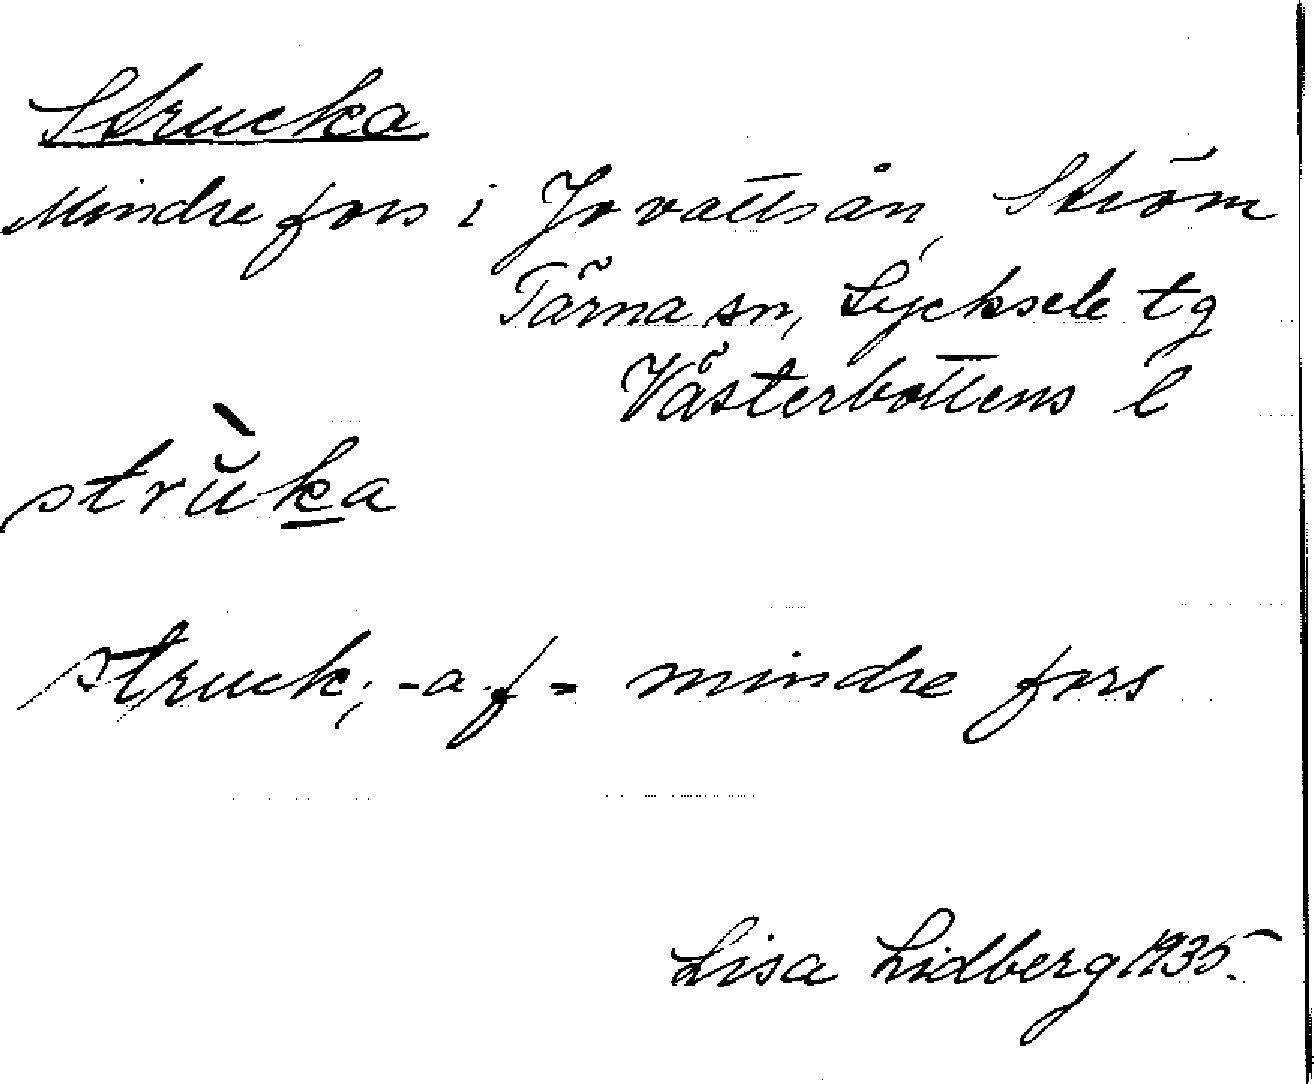 Strucka
Mindre fors i Jovattsån, Ström
Tärna sn, Lycksele tg
Västerbottens l
strŭ̀k̲a
struck, -a f = mindre fors
Lisa Lidberg 1935.